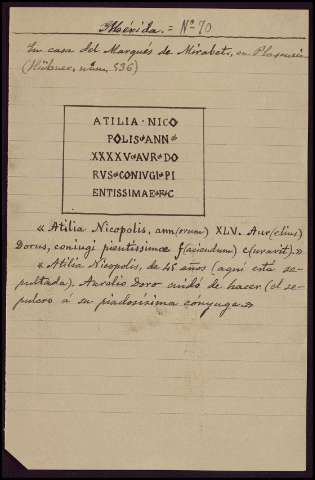 Mérida. = Nº 70
En casa del Marqués de Mirabel, en Plasencia
(Hübner, núm. 536)
ATILIA · NICO
POLIS ANN
XXXXV AVR DO
RVS CONIVGI PI
ENTISSIMAE F C
« Atilia Nicopolis, ann(orum) XLV. Aur(elius)
Dorus, coniugi pientissimæ f(aciendum) c(uravit).»
« Atilia Nicopolis, de 45 años (aquí está se-
pultada). Aurelio Doro cuidó de hacer (el se-
pulcro á su piadosísima cónyuge.»